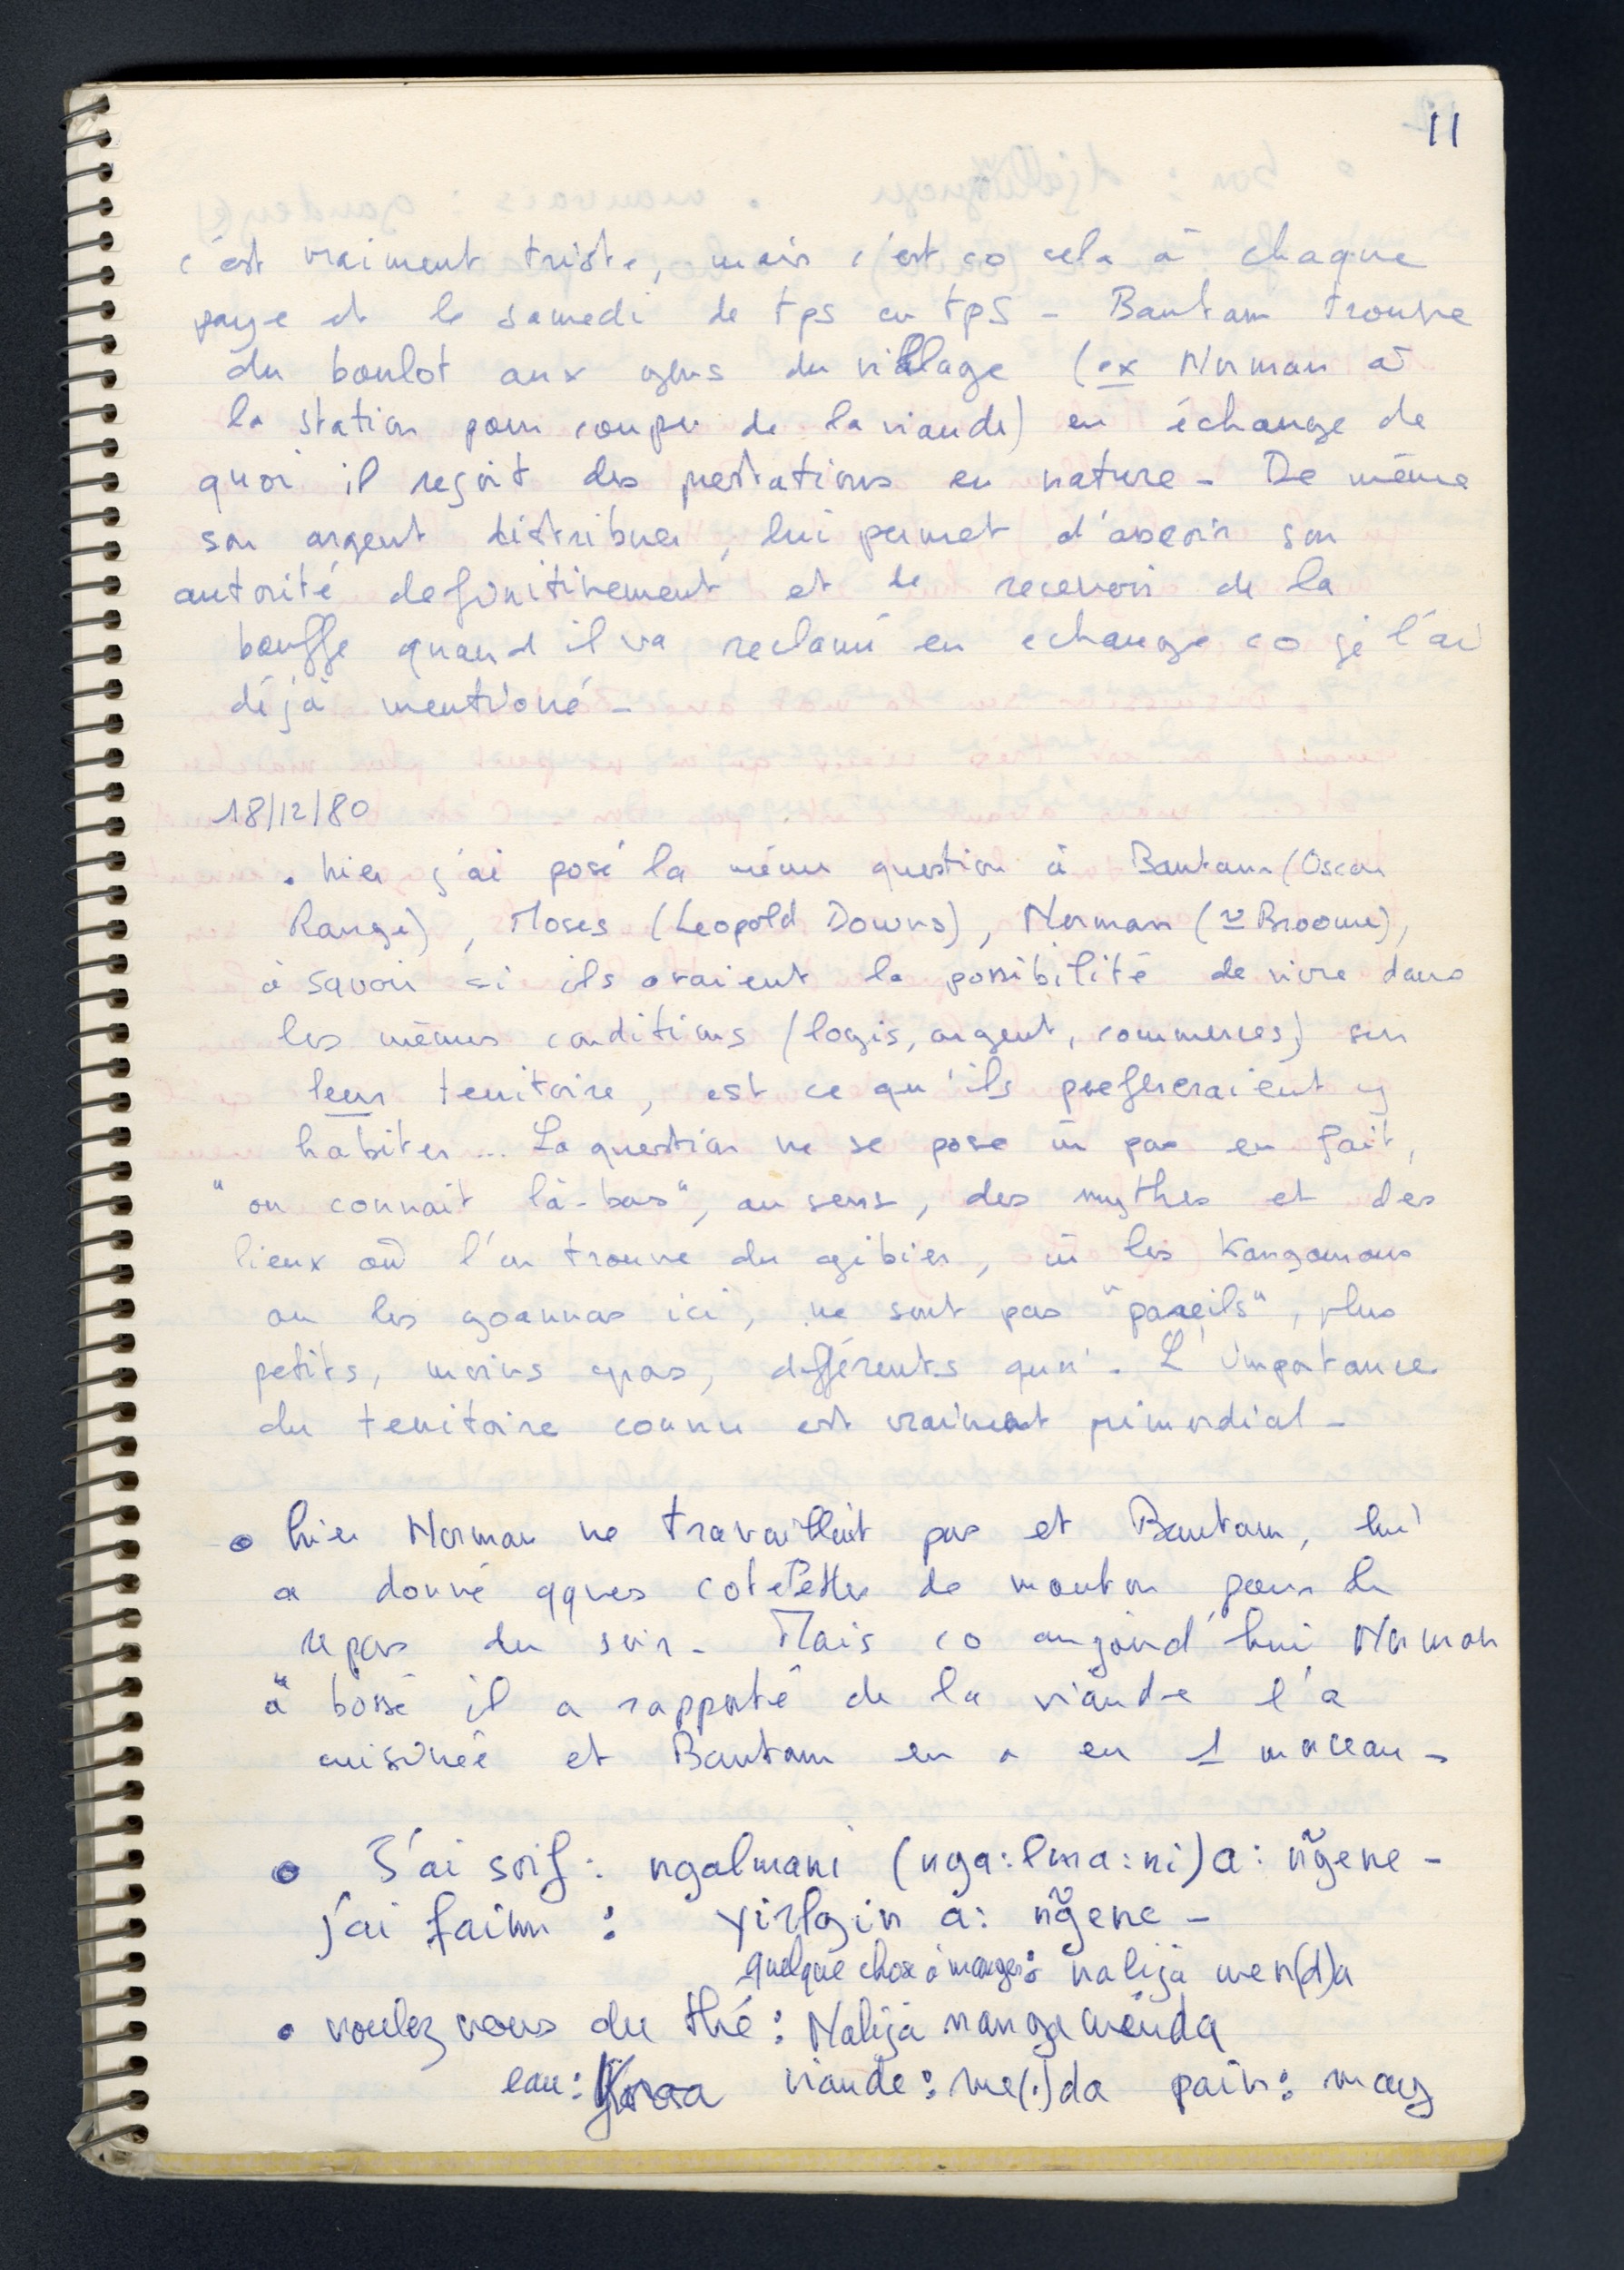 11
c'est vraiment triste, mais c'est co cela à chaque
paye et le samedi de tps en tps - Bantam trouve
du boulot aux gens du village (ex Norman à
la station pour couper de la viande) en échange de
quoi il reçoit des prestations en nature - De même
son argent distribuer, lui permet d'asseoir son
autorité definitivement et de recevoir de la
bouffe quand il va reclamé en echange co je l'ai
déjà mentioné -
18/12/80
. hier j'ai posé la même question à Bantam (Oscar
Range), Moses (Leopold Downs), Norman (≃ Broome),
à savoir si ils avaient la possibilité de vivre dans
les mêmes conditions (logis, argent, commerces) sur
leur territoire, est ce qu'ils prefereraient y
habiter ... La question ne se pose pas en fait,
"on connait là-bas", au sens, des mythes et des
lieux où l'on trouve du gibier, les Kangourous
ou les goannas ici, ne sont pas "pareils", plus
petits, moins gras, différents quoi. L'importance
du territoire connu est vraiment primordial -
• hier Norman ne travaillait pas et Bantam, lui
a donné qques cotelettes de mouton pour le
repas du soir - Mais co aujourd'hui Norman
a bossé il a rapporté de la viande l'a
cuisinée et Bantam en a eu 1 morceau -
• J'ai soif : ngalmani (nga:lma:ni) a: ñgene -
j'ai faim : yirlgin a: ñgene -
quelque chose à manger : nalija men(d)a
• voulez vous du thé : Nalija nanga menda
eau : viande : me(.)da pain : may